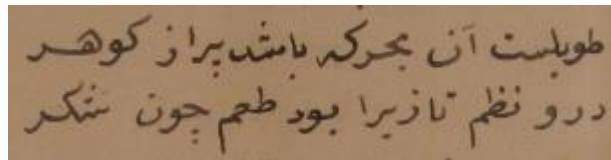 طویلست آن بحر که باشد پر از کوهر
درو نظم تازیرا بود طعم چون شکر